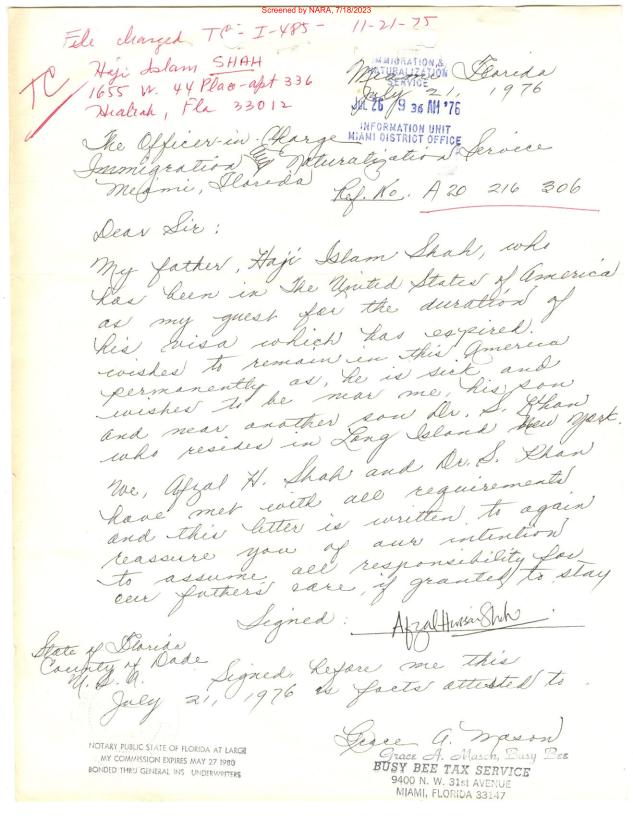 Screened by NARA, 7/18/2023
File charged TC - I-485 - 11-21-75
TC
Haji Islam SHAH
1655 W. 44 Place - apt 336
Hialiah, Fla 33012
Miami, Florida
July 21, 1976
IMMIGRATION &
NATURALIZATION
SERVICE
JUL 26 9 36 AM '76
INFORMATION UNIT
MIAMI DISTRICT OFFICE
The Officer-in-Charge
Immigration & Naturalization Service
Meami, Florida
Ref. No. A20 216 306
Dear Sir:
My father, Haji Islam Shah, who
has been in The United States of America
as my guest for the duration of
his visa which has expired.
wishes to remain in this America
permanently as, he is sick and
wishes to be near me, his son
and near another son Dr. S. Khan
who resides in Long Island New York.
We, Afzal H. Shah and Dr. S. Khan
have met with all requirements
and this letter is written to again
reassure you of our intention
to assume all responsibility for
our father's care, if granted to stay
Signed: Afzal Hussain Shah
State of Florida
County of Dade
U.S.A.
Signed before me this
July 21, 1976 as facts attested to.
Grace A. Mason
Grace A. Mason, Busy Bee
BUSY BEE TAX SERVICE
9400 N. W. 31st AVENUE
MIAMI, FLORIDA 33147
NOTARY PUBLIC STATE OF FLORIDA AT LARGE
MY COMMISSION EXPIRES MAY 27 1980
BONDED THRU GENERAL INS UNDERWRITERS